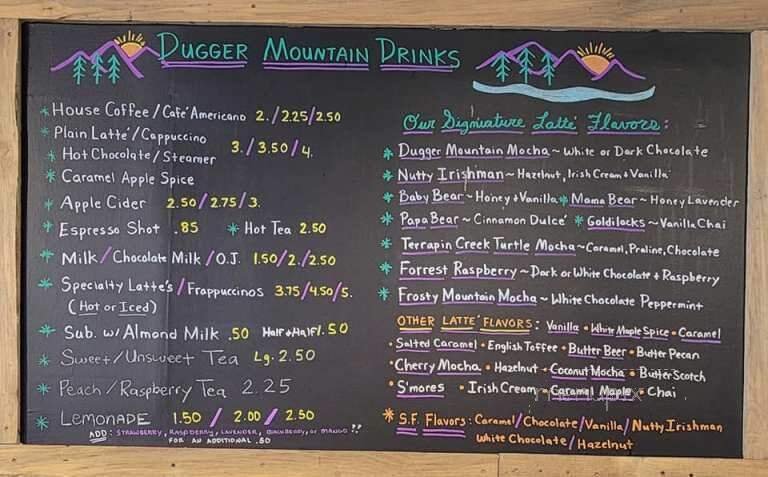 Dugger Mountain Drinks
House Coffee/Café Americano 2./2.25/2.50
Plain Latté/Cappuccino
Hot Chocolate/Steamer 3./3.50/4.
Caramel Apple Spice
Apple Cider 2.50/2.75/3.
Espresso Shot .85 * Hot Tea 2.50
Milk/Chocolate Milk/O.J. 1.50/2./2.50
Specialty Latte's/Frappuccinos 3.75/4.50/5.
(Hot or Iced)
Sub. w/Almond Milk .50 Half+Half/.50
Sweet/Unsweet Tea Lg. 2.50
Peach/Raspberry Tea 2.25
Lemonade 1.50 / 2.00 / 2.50
ADD: STRAWBERRY, RASPBERRY, LAVENDER, BLACKBERRY, OR MANGO!!
FOR AN ADDITIONAL .50
Our Signature Latté Flavors:
Dugger Mountain Mocha ~ White or Dark Chocolate
Nutty Irishman ~ Hazelnut, Irish Cream + Vanilla
Baby Bear ~ Honey + Vanilla * Mama Bear ~ Honey Lavender
Papa Bear ~ Cinnamon Dulce * Goldilocks ~ Vanilla Chai
Terrapin Creek Turtle Mocha ~ Caramel, Praline, Chocolate
Forrest Raspberry ~ Dark or White Chocolate + Raspberry
Frosty Mountain Mocha ~ White Chocolate Peppermint
OTHER LATTÉ FLAVORS: Vanilla • White Maple Spice • Caramel
• Salted Caramel • English Toffee • Butter Beer • Butter Pecan
• Cherry Mocha • Hazelnut • Coconut Mocha • ButterScotch
• S'mores • Irish Cream • Caramel Maple • Chai
* S.F. Flavors: Caramel/Chocolate/Vanilla/Nutty Irishman
White Chocolate/Hazelnut